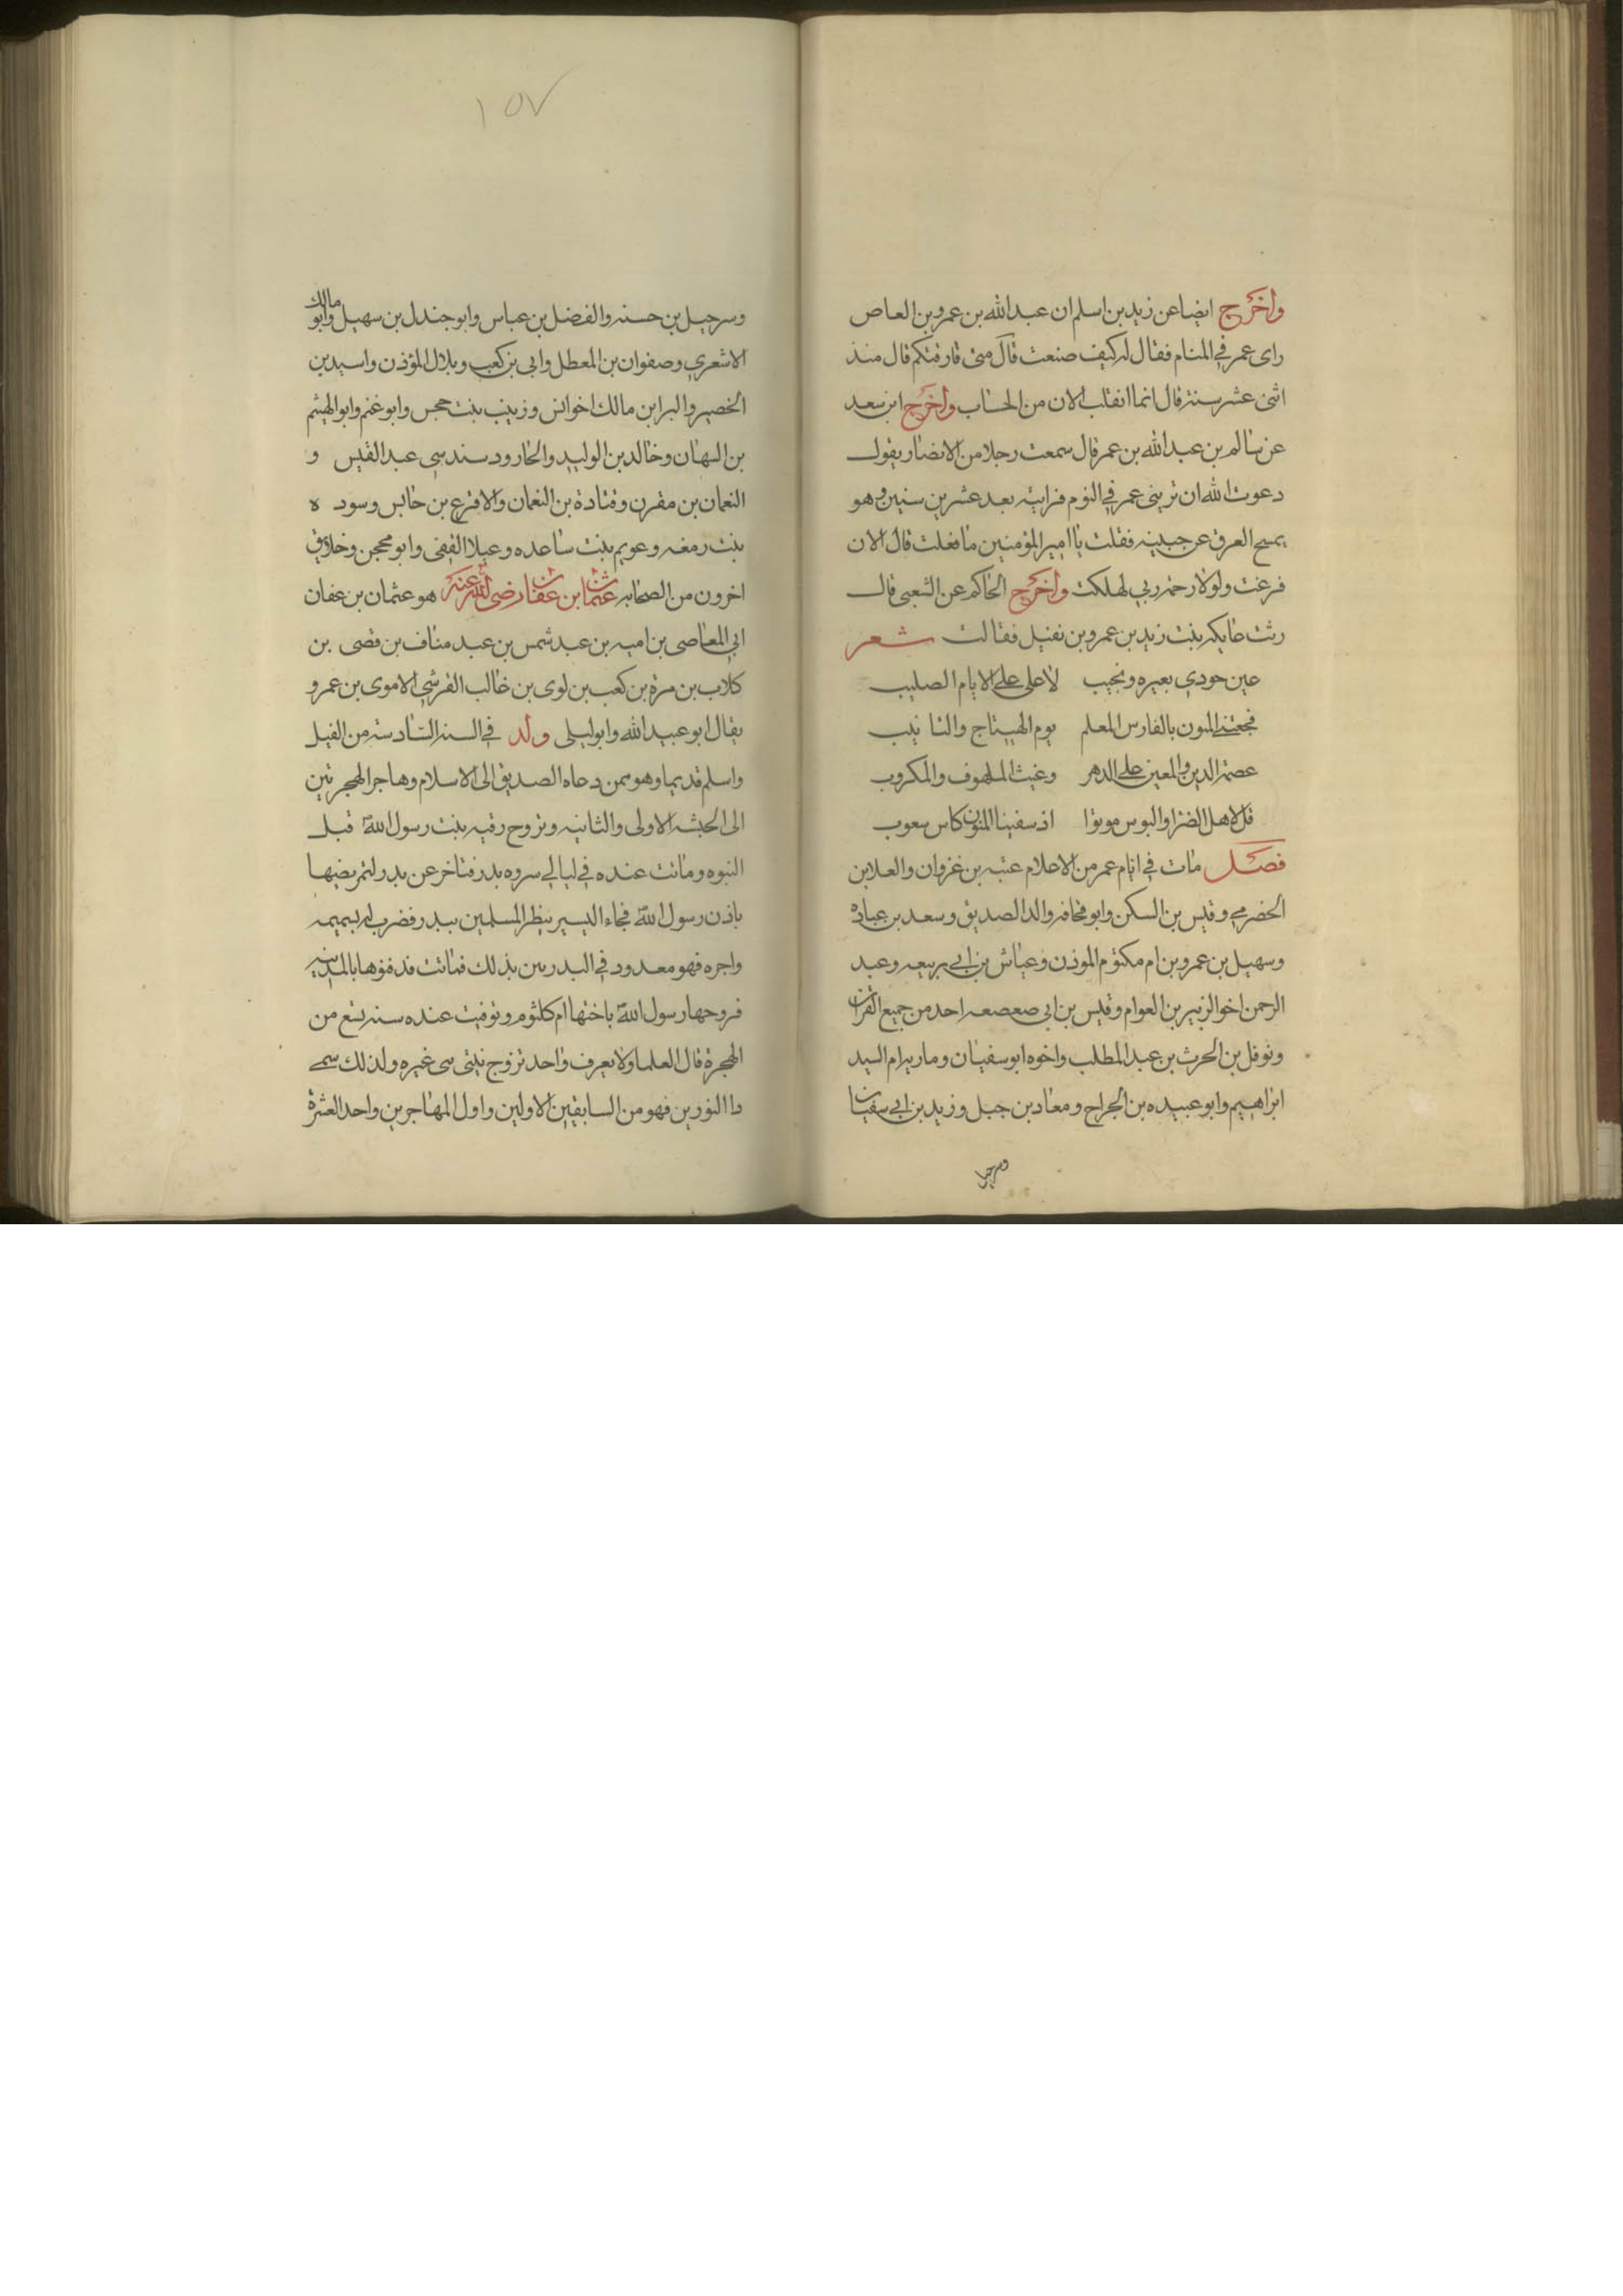 واخرج ايضا عن زيد بن اسلم ان عبد الله بن عمرو بن العاص
راى عمر في المنام فقال له كيف صنعت قال متى فارقتكم قال منذ
اثنى عشر سنة قال انما انقلب الان من الحساب واخرج ابن سعد
عن سالم بن عبد الله بن عمر قال سمعت رجلا من الانصار يقول
دعوت الله ان تريني عمر في النوم فرايته بعد عشرين سنين وهو
يمسح العرق عن جبينه فقلت يا امير المؤمنين ما فعلت قال الان
فرغت ولولا رحمة ربي لهلكت واخرج الحاكم عن الشعبي قال
رثت عاتكه بنت زيد بن عمرو بن نفيل فقالت شعر
عين جودي بعبره ونحيب لا على على الايام الصليب
فجعتني المنون بالفارس المعلم يوم الهيتاج والتانيب
عصمة الدين والمعين على الدهر وغيث الملهوف والمكروب
قل لاهل الضرا والبوس موتوا اذ سفينا المنون كاس سعوب
فصل مات في ايام عمر من الاعلام عتبه بن غزوان والعلا بن
الحضرمي وقيس بن السكن وابو قحافه والد الصديق وسعد بن عباده
وسهيل بن عمرو بن ام مكتوم الموذن وعياش بن ابي ربيعه وعبد
الرحمن اخو الزبير بن العوام وقيس بن ابى صعصعه احد من جميع القران
ونوفل بن الحرث بن عبد المطلب واخوه ابو سفيان وماريه ام السيد
ابراهيم وابو عبيده بن الجراح ومعاد بن جبل وزيد بن ابي سفيان
وسرحيل
١٥٧
وسرحيل بن حسنه والفضل بن عباس وابو جندل بن سهيل وابو مالك
الاشعري وصفوان بن المعطل وابى بن كعب وبلال المؤذن واسيد بن
الخضير والبرا بن مالك اخوانس وزينب بنت حجس وابو غنم وابو الهيثم
بن التيهان وخالد بن الوليد والحارود سند سى عبد القيس و
النعمان بن مقرن وقتادة بن النعمان والاقرع بن حابس وسود ه
بنت رمعه وعويم بنت ساعده وعيلا الثقفى وابو محجن وخلايق
اخرون من الصحابه عثمان ابن عفان رضى الله عنه هو عثمان بن عفان
ابي العاصى بن اميه بن عبد شمس بن عبد مناف بن قصى بن
كلاب بن مرة بن كعب بن لوى بن غالب القرشي الاموى بن عمرو
يقال ابو عبيد الله وابو ليلى ولد في السنة السادسة من الفيل
واسلم قديما وهو ممن دعاه الصديق الى الاسلام وهاجر الهجرتين
الى الحبشه الاولى والثانيه وتزوج رقيه بنت رسول الله قبل
النبوه وماتت عنده في ليالي سروه بدر فتاخر عن بدر لتمريضها
باذن رسول الله فجاء اليسير ينظر المسلمين ببدر فضرب له بسهمه
واجره فهو معدود في البدريين بذلك فماتت فدفنوها بالمدينه
فزوجها رسول الله باختها ام كلثوم وتوفيت عنده سنة تسع من
الهجرة قال العلما ولا يعرف واحد تزوج بنتى سى غيره ولذلك سمى
دا النورين فهو من السابقين الاولين واول المهاجرين واحد العشرة